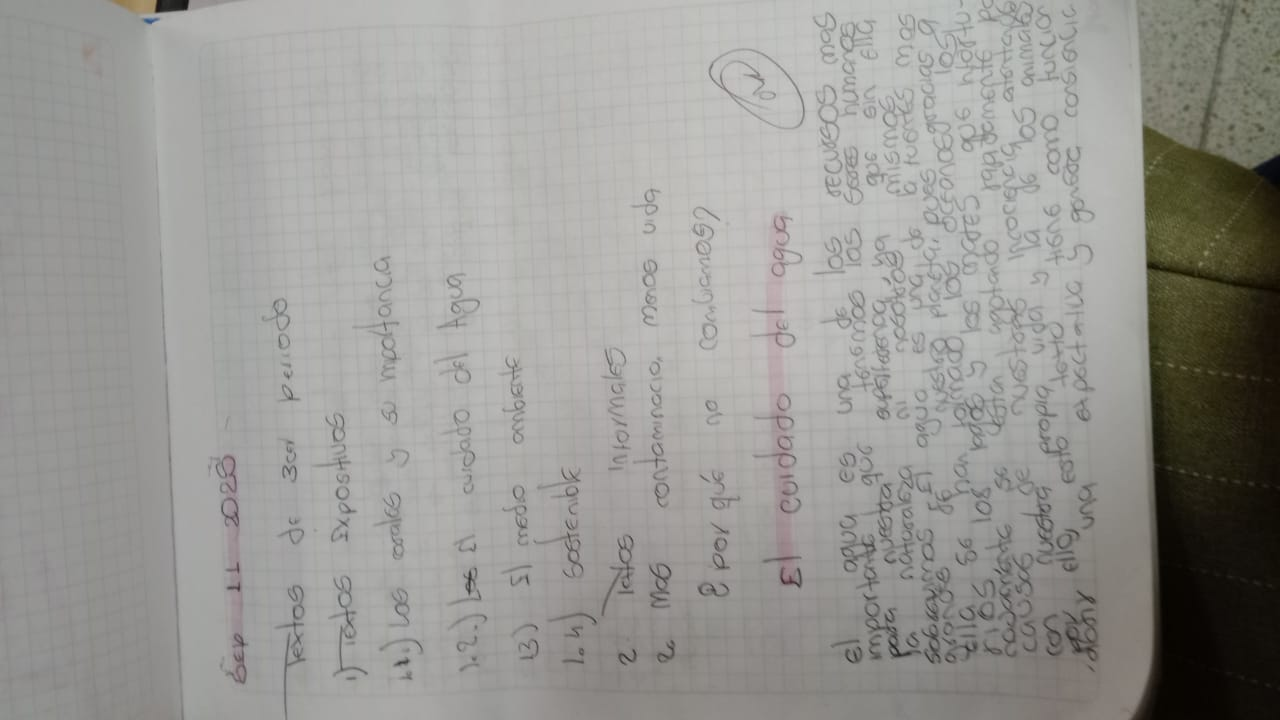 Sep 11 2025
Textos de 3er periodo
1) Textos Expositivos
1.1.) Los corales y su importancia
1.2.) El cuidado del Agua
1.3) El medio ambiente
1.4) Sostenible
2. Textos Informales
2. Mas contaminacia, menos vida
¿por qué no cambiamos?
El cuidado del agua
El agua es una de los recursos mas
importante que tenemos los seres humanos
para nuestra existencia, ya que sin ella
la naturaleza ni nosotros mismos
El agua es una de la fuentes mas
grandes de nuestro planeta, pues gracias a
ella se han formado los océanos, los
ríos y los mares que
se están agotando rapidamente por
causas de nuestras
con nuestra propia vida y la de los animales
por ello, este texto tiene como funcion
abrir una expectativa y generar consiencia